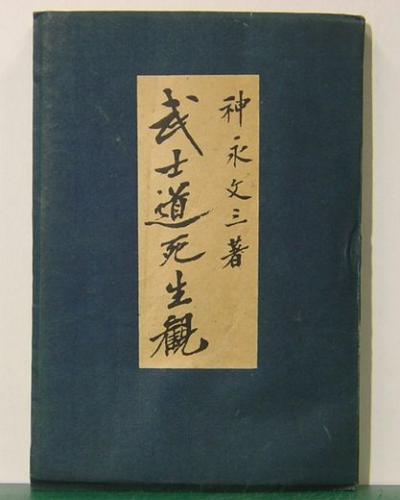 神永文三著
武士道死生觀